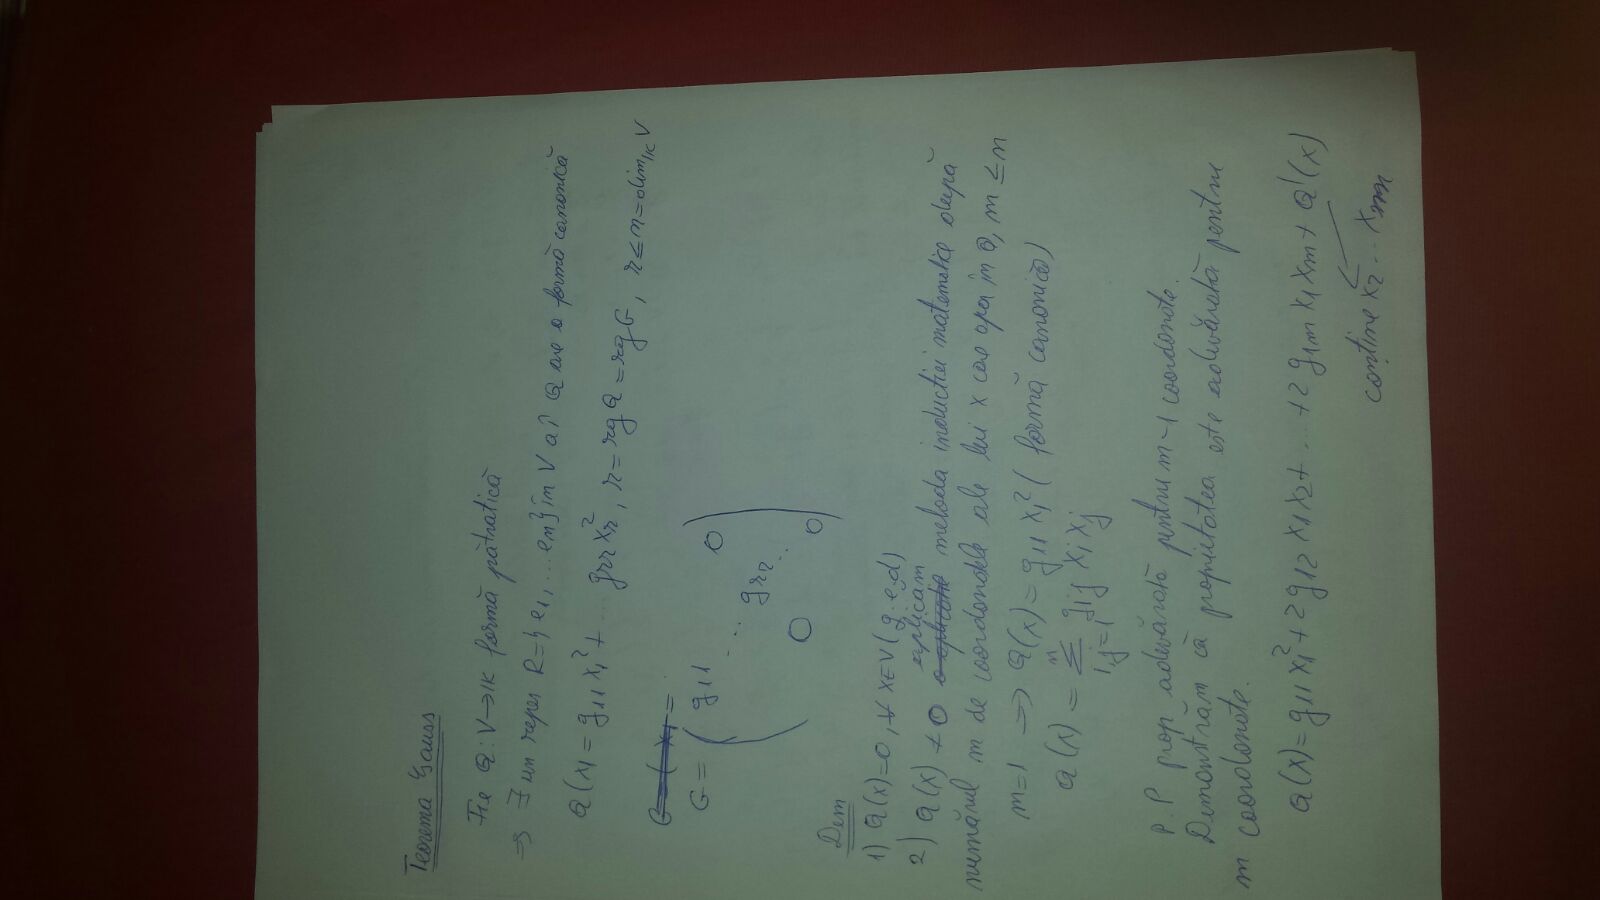 Teorema Gauss
Fie Q: V → IK formă pătratică
⇒ ∃ un reper R = {e1, ... em} în V aî Q are o formă canonică
Q(x) = g11 x1² + ... grr xr², r = rg Q = rg G, r ≤ n = dim IK V
G =
G = ( g11 ... grr ... 0 0 0 )
Dem
1) Q(x) = 0, ∀ x ∈ V (g.e.d)
aplicăm
2) Q(x) ≠ 0 metoda inducției matematice după
numărul m de coordonate ale lui x care apar in Q, m ≤ n
m = 1 ⇒ Q(x) = g11 x1² (formă canonică)
Q(x) = Σ i,j=1 n gij xi xj
P. P prop adevărată pentru m-1 coordonate.
Demonstrăm că proprietatea este adevărată pentru
m coordonate.
Q(x) = g11 x1² + 2 g12 x1 x2 + ... + 2 g1m x1 xm + Q'(x)
conține x2 ... xm